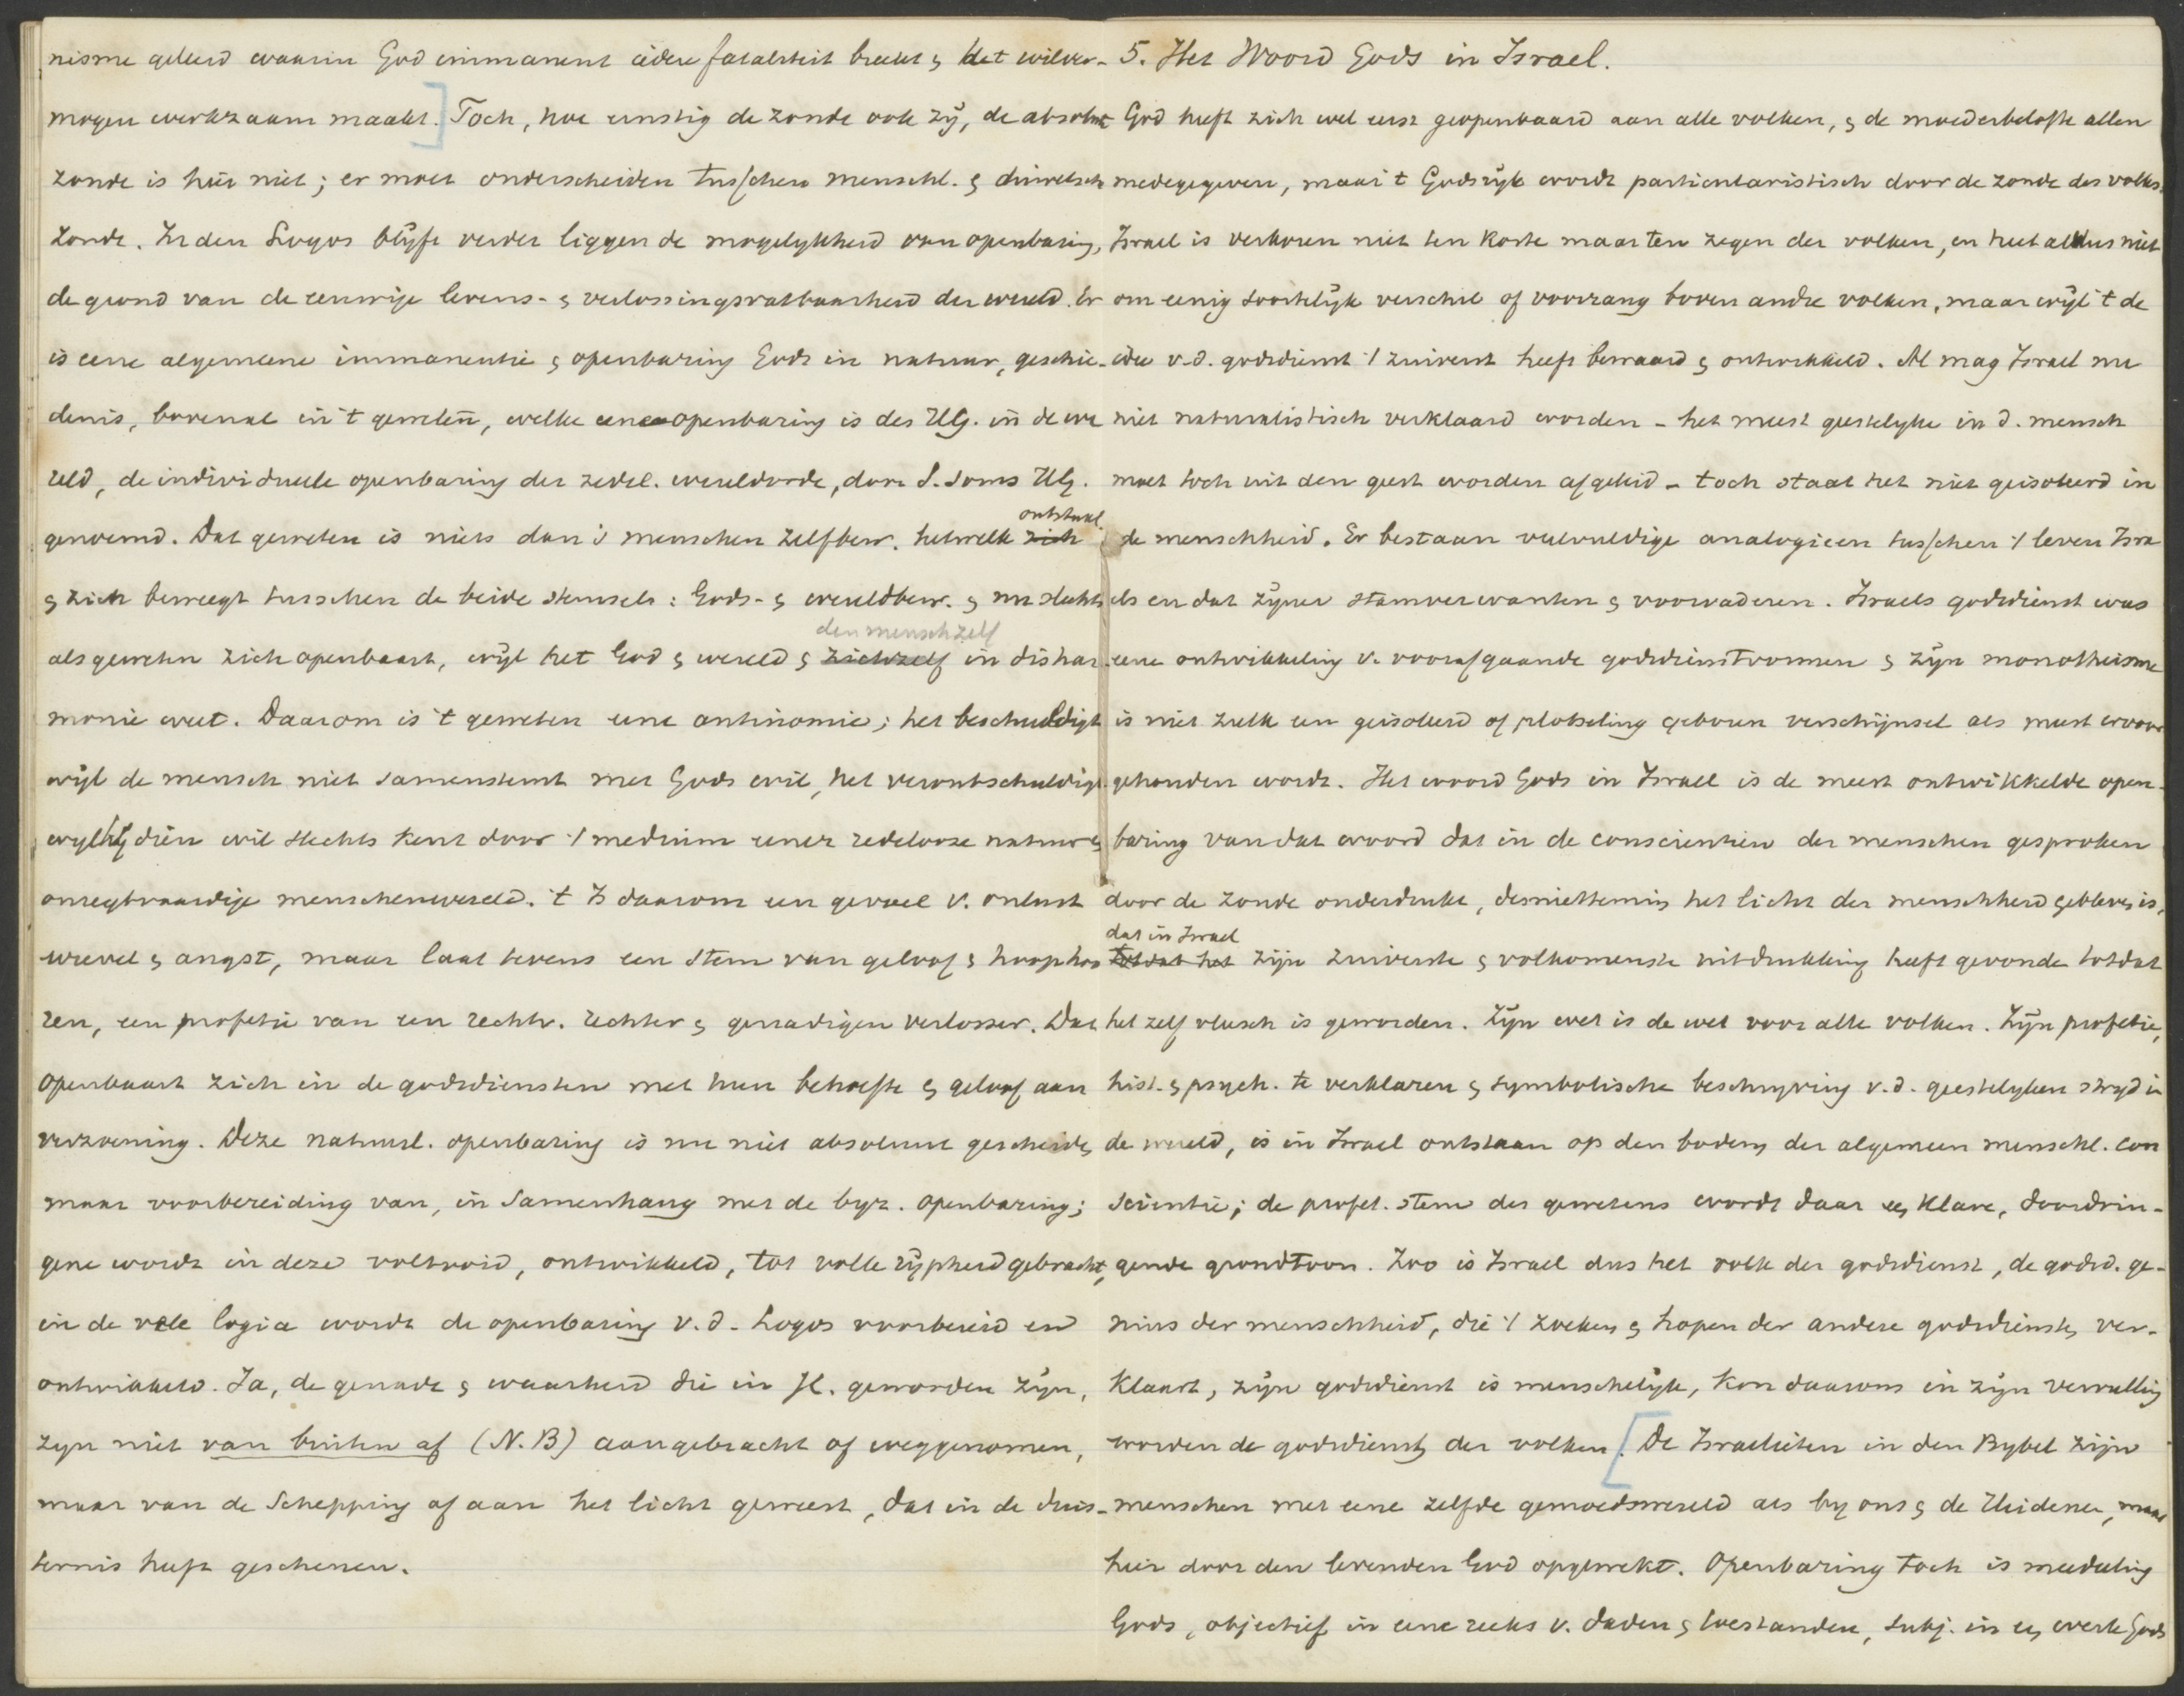 nisme geleerd waarin God immanent iedere fataliteit breekt & het wilver-
mogen werkzaam maakt.] Toch, hoe ernstig de zonde ook zij, de absolute
zonde is hier niet; er moet onderscheiden tusschen menschl. & duivelsch
zonde. In den Logos blijft verder liggen de mogelijkheid van openbaring,
de grond van de eeuwige levens- & verlossingsvatbaarheid der wereld. Er
is eene algemeene immanentie & openbaring Gods in natuur, geschie-
denis, bovenal in 't geweten, welke eene openbaring is des HG. in de we
reld, de individueele openbaring der zedel. wereldorde, door S. soms HG.
genoemd. Dat geweten is niets dan 's menschen zelfbew. hetwelk ~~zich~~ ontstaat
& zich beweegt tusschen de beide stensels: Gods- & wereldbew. & nu slechts
als geweten zich openbaart, wijl het God & wereld & ~~zichzelf~~ den mensch zelf in dishar
monie weet. Daarom is 't geweten eene antinomie; het beschuldigt
wijl de mensch niet samenstemt met Gods wil, het verontschuldigt
wyl hij dien wil slechts kent door 't medium eener redelooze natuur &
onregtvaardige menschenwereld. 't Is daarom een gevoel v. onlust
wrevel & angst, maar laat tevens een stem van geloof & hoop hoo
ren, een profetie van een rechtv. rechter & genadigen verlosser. Dat
openbaart zich in de godsdiensten met hun behoefte & geloof aan
verzoening. Deze natuurl. openbaring is nu niet absoluut gescheiden
maar voorbereiding van, in samenhang met de byz. openbaring;
gene wordt in deze voltooid, ontwikkeld, tot volle rijpheid gebracht,
in de vele logia wordt de openbaring v.d. Logos voorbereid en
ontwikkeld. Ja, de genade & waarheid die in JC. geworden zijn,
zyn niet van buiten af (N.B) aangebracht of weggenomen,
maar van de Schepping af aan het licht geweest, dat in de duis-
ternis heeft geschenen.
5. Het Woord Gods in Israel.
God heeft zich wel eerst geopenbaard aan alle volken, & de moederbelofte allen
medegegeven, maar 't Godsrijk wordt particularistisch door de zonde des volks.
Israel is verkoren niet ten koste maar ten zegen der volken, en heet aldus niet
om eenig soortelijk verschil of voorrang boven andre volken, maar wijl 't de
idee v.d. godsdienst 't zuiverst heeft bewaard & ontwikkeld. Al mag Israel nu
niet naturalistisch verklaard worden - het meest geestelyke in d. mensch
moet toch uit den geest worden afgeleid - toch staat het niet geisoleerd in
de menschheid. Er bestaan veelvuldige analogieen tusschen 't leven Isra
els en dat zijner stamverwanten & voorvaderen. Israels godsdienst was
eene ontwikkeling v. voorafgaande godsdienstvormen & zijn monotheisme
is niet zulk een geisoleerd of plotseling geboren verschijnsel als meest ervoor
gehouden wordt. Het woord Gods in Israel is de meest ontwikkelde open-
baring van dat woord dat in de conscientien der menschen gesproken
door de zonde onderdrukt, desniettemin het licht der menschheid gebleven is,
~~totdat het~~ dat in Israel zijn zuiverste & volkomenste uitdrukking heeft gevonden totdat
het zelf vleesch is geworden. Zijn wet is de wet voor alle volken. Zijn profetie,
hist. & psych. te verklaren & symbolische beschryving v.d. geestelyken stryd in
de wereld, is in Israel ontstaan op den bodem der algemeen menschl. con
scientie; de profet. stem des gewetens wordt daar een klare, doordrin-
gende grondtoon. Zoo is Israel dus het volk der godsdienst, de godsd. ge-
nius der menschheid, die 't zoeken & hopen der andere godsdiensten ver-
klaart, zijn godsdienst is menschelijk, kon daarom in zijn vervulling
worden de godsdienst der volken. [De Israelieten in den Bybel zijn
menschen met eene zelfde gemoedswereld als by ons & de Heidenen, maar
hier door den levenden God opgewekt. Openbaring toch is mededeeling
Gods, objectief in eene reeks v. daden & toestanden, subj. in een werk Gods